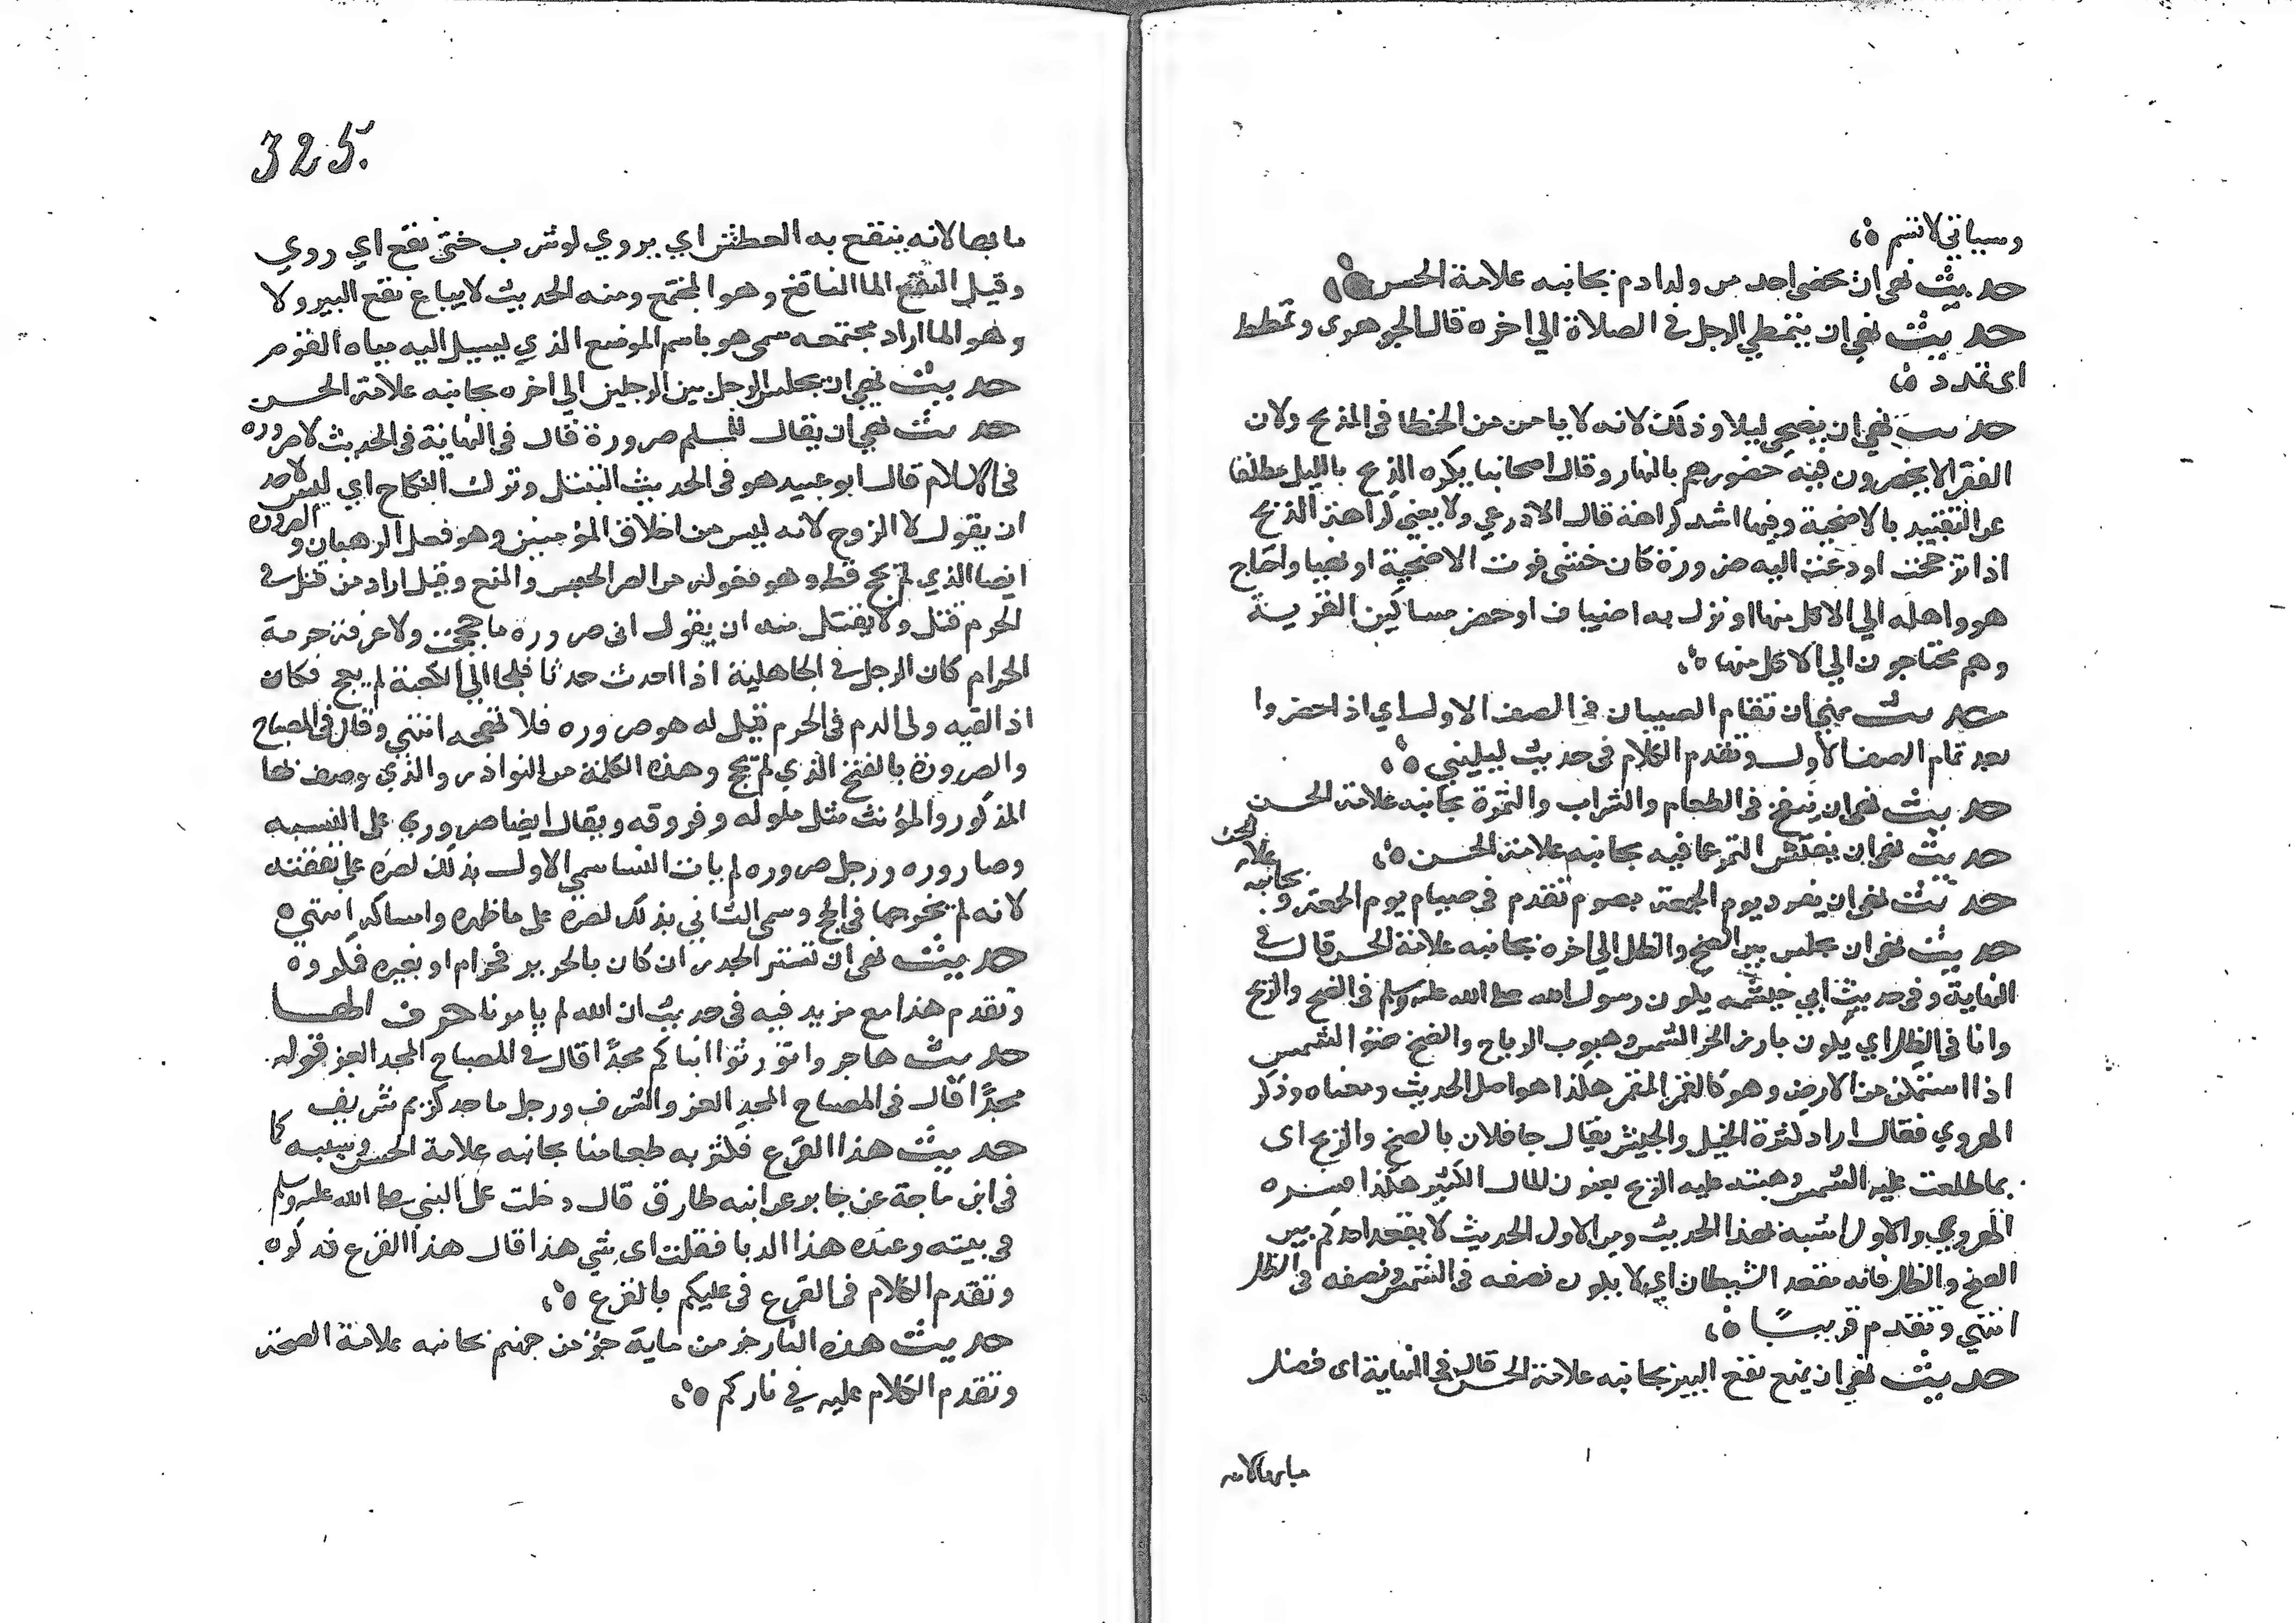 وسياتي لا تسم ه،
حديث نهى ان يخصى احد من ولد ادم بجانبه علامة الحسن ه،
حديث نهى ان يتمطى الرجل في الصلاة الي اخره قال الجوهري وتمطط
اى تمدد ه،
حديث نهي ان يضحي ليلا وذلك لانه لا يامن من الخطا في الذبح ولان
الفقرا لا يحضرون فيه حضورهم بالنهار وقال اصحابنا يكره الذبح بالليل مطلقا
عن التقييد بالاضحية وفيها اشد كراهة قال الاذرعي ولا يخفي كراهة الذبح
اذا ترجحت او دعت اليه ضرورة كان خشى فوت الاضحية او نهبا واحتاج
هو واهله الي الاكل منها او نزل به اضياف او حضر مساكين القرية
وهم محتاجون الي الاكل منها ه،
حديث نهي ان تقام الصبيان في الصف الاول اي اذ احضروا
بعد تمام الصف الاول وتقدم الكلام في حديث ليليني ه،
حديث نهى ان ينفخ في الطعام والشراب والثمرة بجانبه علامة الحسن
حديث نهى ان يفتش التمر عما فيه بجانبه علامة الحسن ه،
حديث نهى ان يفرد يوم الجمعة بصوم تقدم في صيام يوم الجمعة و بجانبه علامة الحسن
حديث نهى ان يجلس بين الضح والظل الي اخره بجانبه علامة الحسن قال في
النهاية وفي حديث ابي خيثمه يكون رسول الله صلى الله عليه وسلم في الضح والريح
وانا في الظل اي يكون بارز الحر الشمس وهبوب الرياح والضح ضوء الشمس
اذا استمكن من الارض وهو كالقمر للقمر هكذا هو اصل الحديث ومعناه وذكر
الهروي فقال اراد كثرة الخيل والجيش يقال جا فلان بالضح والريح اى
بما طلعت عليه الشمس وهبت عليه الريح يعنون المال الكثير هكذا فسره
الهروي والاول اشبه بهذا الحديث ومن الاول الحديث لا يقعد احدكم بين
الضح والظل فانه مقعد الشيطان اي لا يكون نصفه في الشمس ونصفه في الظل
انتهي وتقدم قريبًا ه،
حديث نهي ان يمنع نقع البير بجانبه علامة الحسن قال في النهاية اى فضل
مايها لانه
325
مايها لانه ينقع به العطش اي يروي لو شرب حتى نقع اي روي
وقيل النقع الما الناقع وهو المجتمع ومنه الحديث لا يباع نقع البير ولا
وهو الما اراد مجتمعه سمى هو باسم الموضع الذي يسيل اليه مياه القوم
حديث نهي ان يجلس الرجل بين الرجلين الي اخره بجانبه علامة الحسن
حديث نهي ان يقال للمسلم صرورة قال في النهاية في الحديث لا صروره
في الاسلام قال ابو عبيد هو في الحديث التبتل وترك النكاح اي ليس لاحد
ان يقول لا اتزوج لانه ليس من اخلاق المؤمنين وهو فعل الرهبان والصرورة
ايضا الذي لم يحج قط وهو مقوله من الصر الحبس والمنع وقيل اراد من قتل في
الحرم قتل ولا يقبل منه ان يقول اني صرورة ما حججت ولا عرفت حرمة
الحرام كان الرجل في الجاهلية اذا احدث حدثا فلجا الي الكعبة لم يهج فكان
اذ القيه ولي الدم في الحرم قيل له هو صروره فلا تهجه انتهي وقال في المصباح
والصرورة بالفتح الذي لم يحج وهذه الكلمة من النوادر والذي وصف بها
المذكور والمؤنث مثل ملوله وفروقه ويقال ايضا صروري على النسبه
وصاروره ورجل صروره لم يات النسا سمي الاول بذلك لصره على نفقته
لانه لم يخرجها في الحج وسمى الثاني بذلك لصره على ما ظهره وامساكه انتهي ه
حديث نهى ان تستر الجدر ان كان بالحرير فحرام او بغيره فمكروه
وتقدم هذا مع مزيد فيه في حديث ان الله لم يامرنا حرف الهــا
حديث هاجروا تورثوا ابناكم مجدًا قال في المصباح المجد العز قوله
مجدًا قال في المصباح المجد العز والشرف ورجل ماجد كريم شريف
حديث هذا القرع فكثر به طعامنا بجانبه علامة الحسن وسببه كما
في ابن ماجة عن جابر عن ابيه طارق قال دخلت على النبي صلى الله عليه وسلم
في بيته وعنده هذا الدبا فقلت اى شي هذا قال هذا القرع فذكره
وتقدم الكلام في القرع في عليكم بالقرع ه،
حديث هذه النار جزء من ماية جزء من جهنم بجانبه علامة الصحة
وتقدم الكلام عليه في ناركم ه،